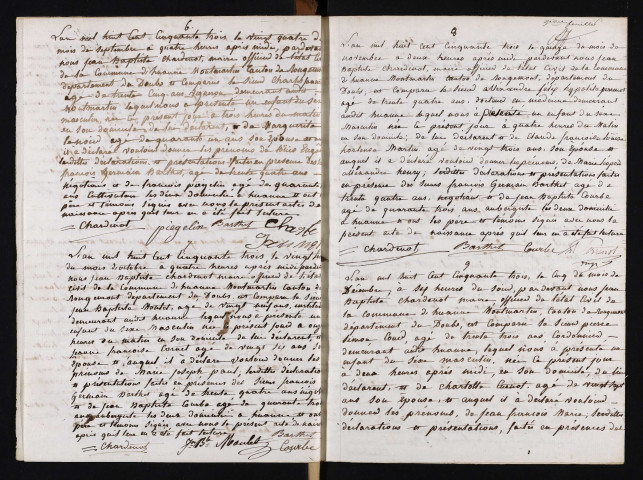 6.
L'an mil huit cent Cinquante trois, le vingt quatre du
mois de Septembre à quatre heures après midi, pardevant
nous jean Baptiste chardenot, maire officier de l'état civil
de la Commune d'huanne Montmartin Canton de Rougemont
département du Doubs est Comparu le Sieur Charles
agé de trente cinq ans demeurant audit
Montmartin lequel nous a présenté un enfant du sexe
masculin né le présent jour à trois heures du matin
en son domicile, de lui déclarant, et de Marguerite
agé de quarante ans son épouse et
a déclaré vouloir donner les prénoms de
lesdites déclaration et présentation faites en présence des
françois Germain Barthet, agé de trente quatre ans
négociant et de francois piegelin agé de quarante
ans Cultivateur les deux domiciliés à huanne et ont
père et témoins signés avec nous le présent acte de
naissance après qu'il leur en a été fait lecture
Chardenot piegelin Barthet
7.
L'an mil huit cent Cinquante trois, le vingt
du mois d'octobre à quatre heures après midi pardevant
nous jean Baptiste chardenot maire officier de l'état
civil de la Commune d'huanne Montmartin Canton de
Rougemont département du Doubs, est Comparu le Sieur
jean Baptiste agé de vingt neuf ans, instituteur
demeurant audit huanne lequel nous a présenté un
enfant du sexe Masculin né le présent jour à onze
heures du matin en son domicile de lui déclarant, et
jeanne françoise agé de vingt six ans son
épouse et auquel il a déclaré vouloir donner les
prénoms de Marie joseph paul, lesdites déclaration
et présentation faites en présence des Sieurs françois
Germain Barthet agé de trente quatre ans négociant
et de jean Baptiste Courbe agé de quarante trois
aubergiste les deux domiciliés à huanne et ont
père et témoins signés avec nous le présent acte de naissance
après qu'il leur en a été fait lecture
Chardenot J. Bte Barthet Courbe
8
L'an mil huit cent Cinquante trois le quinze du mois de
novembre à deux heures après midi pardevant nous jean
Baptiste chardenot, maire officier de l'état Civil de la commune
d'huanne Montmartin canton de Rougemont, département du
Doubs, est Comparu le Sieur alexandre felix hyppolite
agé de trente quatre ans. docteur en médecine demeurant
audit huanne lequel nous a présenté un enfant du sexe
Masculin né le présent jour à quatre heures du Matin
en son domicile, de lui déclarant et de Claude françoise
Martin agé de vingt trois ans. son épouse et
auquel il a déclaré vouloir donner les prénoms, de Marie joseph
alexandre henry; lesdites déclaration et présentation faites
en présence des Sieurs françois Germain Barthet agé de
trente quatre ans, négociant et de jean Baptiste Courbe
agé de quarante trois ans, aubergiste les deux domiciliés
à huanne et ont père et témoins signés avec nous le
présent acte de naissance après qu'il leur en a été fait lecture
Chardenot Barthet Courbe
9
L'an mil huit cent Cinquante trois, le cinq du mois de
Décembre, à six heures du soir, pardevant nous jean
Baptiste Chardenot maire, officier de l'état Civil de
la commune d'huanne Montmartin, Canton de Rougemont
département du Doubs, est Comparu le Sieur pierre
Simon agé de trente trois ans Cordonnier
demeurant audit huanne, lequel nous a présenté un
enfant du sexe masculin, né le présent jour
à deux heures après midi, en son domicile, de lui
déclarant, et de Charlotte agé de vingt sept
ans son épouse, et auquel il a déclaré vouloir
donner les prénoms, de jean françois Marie, lesdites
déclaration et présentation, faites en présence des